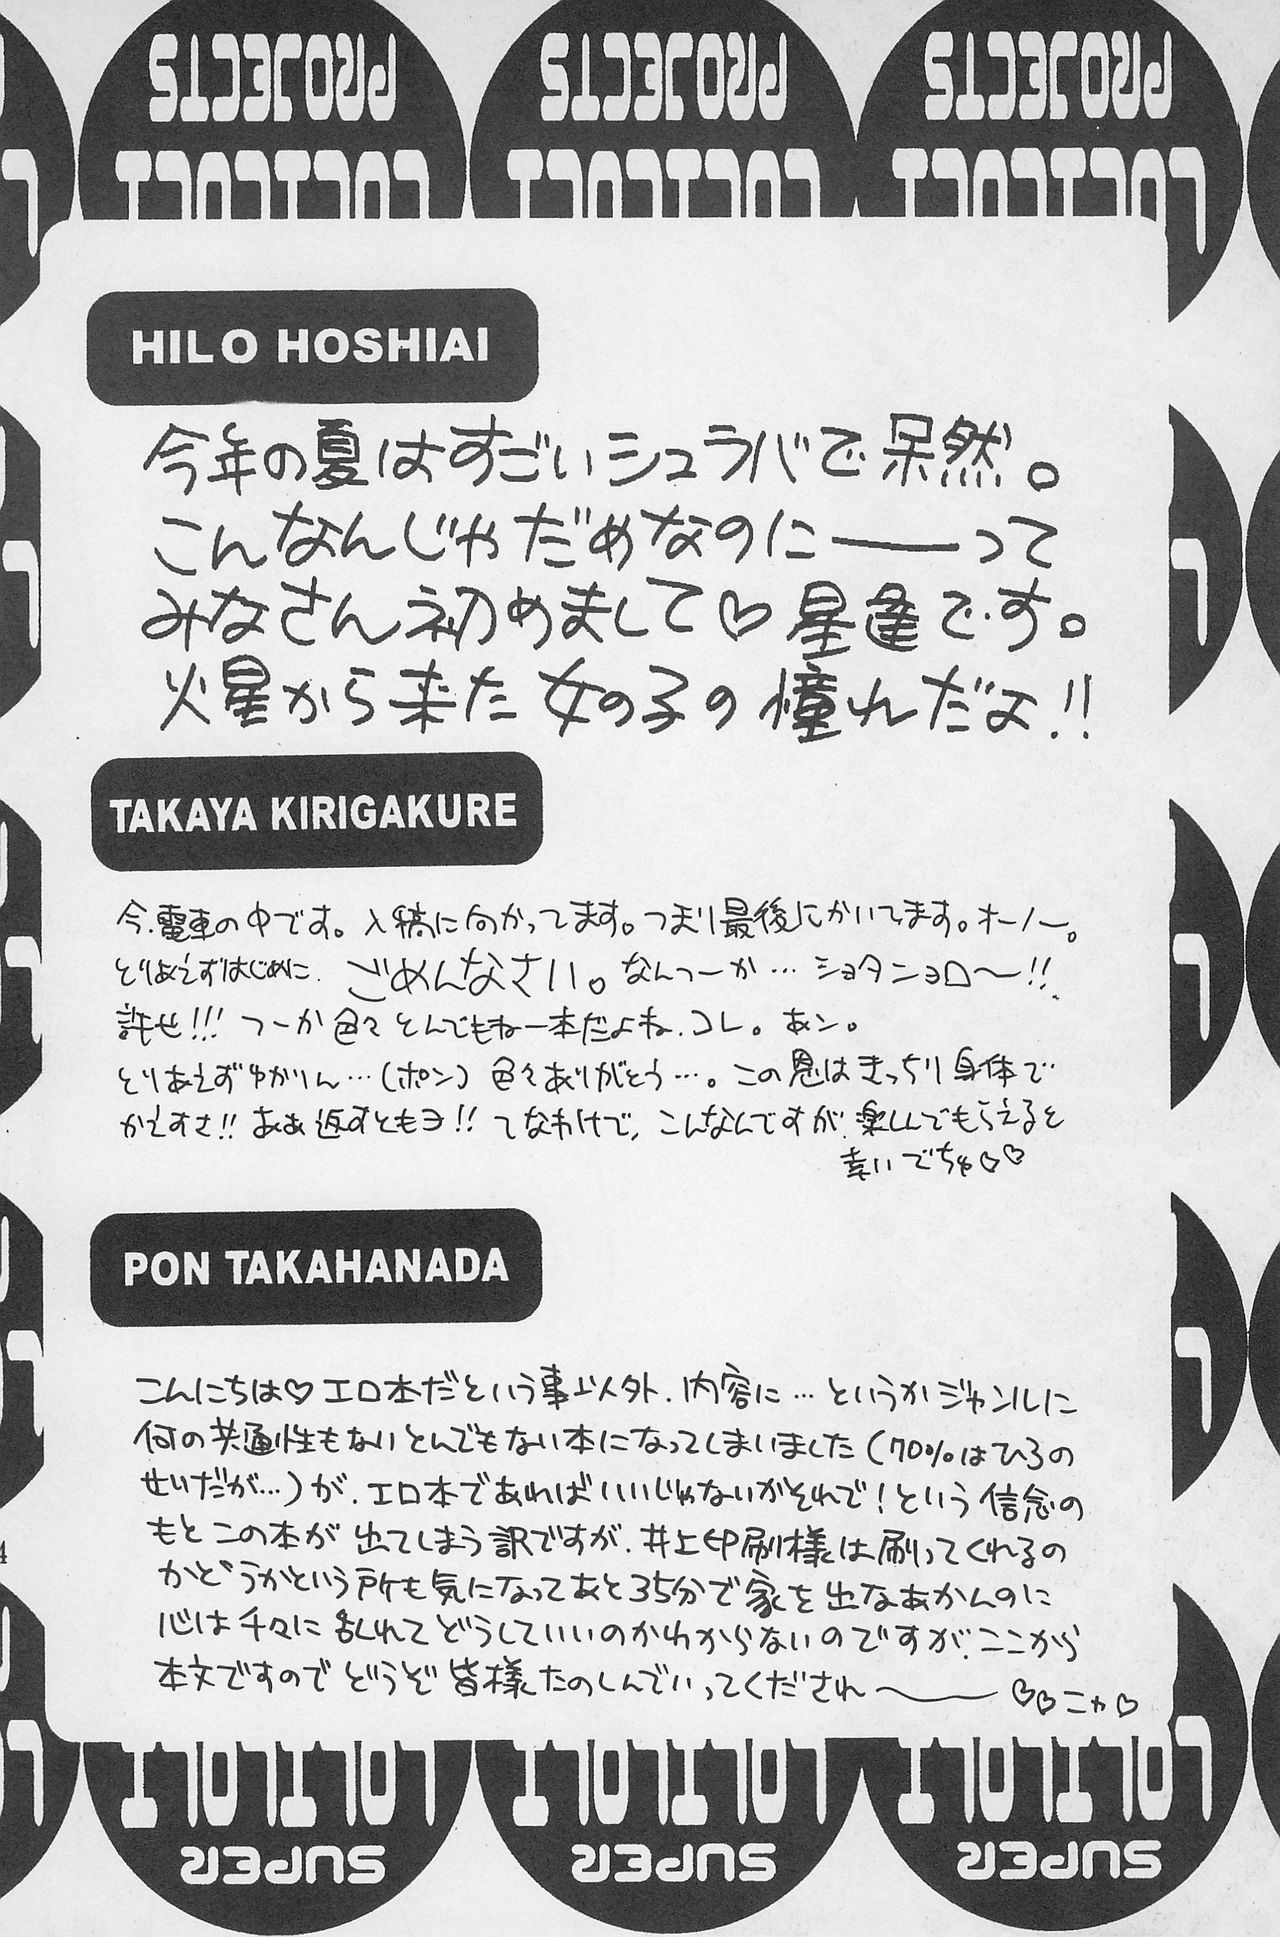 PROJECTS PROJECTS PROJECTS
LOLILOLI LOLILOLI LOLILOLI
HILO HOSHIAI
今年の夏はすごいシュラバで呆然。
こんなんじゃだめなのに――って
みなさん初めまして♡星逢です。
火星から来た女の子の憧れだよ!!
TAKAYA KIRIGAKURE
今、電車の中です。入稿に向かってます。つまり最後にかいてます。オーノー。
とりあえずはじめに、ごめんなさい。なんつーか…ショタンョロ〜!!
許せ!!! つーか色々とんでもねー本だよね、コレ。あン。
とりあえずゆかりん…(ポン)色々ありがとう…。この恩はきっちり身体で
かえすさ!!ああ返すともヨ!!てなわけで、こんなんですが、楽しんでもらえると
幸いでちゅ♡♡
PON TAKAHANADA
こんにちは♡エロ本だという事以外、内容に…というかジャンルに
何の共通性もないとんでもない本になってしまいました(70%はひろの
せいだが…)が、エロ本であればいいじゃないかそれで!という信念の
もとこの本が出てしまう訳ですが、井上印刷様は刷ってくれるの
かどうかという所も気になってあと35分で家を出なあかんのに
心は千々に乱れてどうしていいのかわからないのですが、ここから
本文ですのでどうぞ皆様たのしんでいってくだされ〜――♡♡ニャ♡
4
LOLILOLI LOLILOLI LOLILOLI
SUPER SUPER SUPER